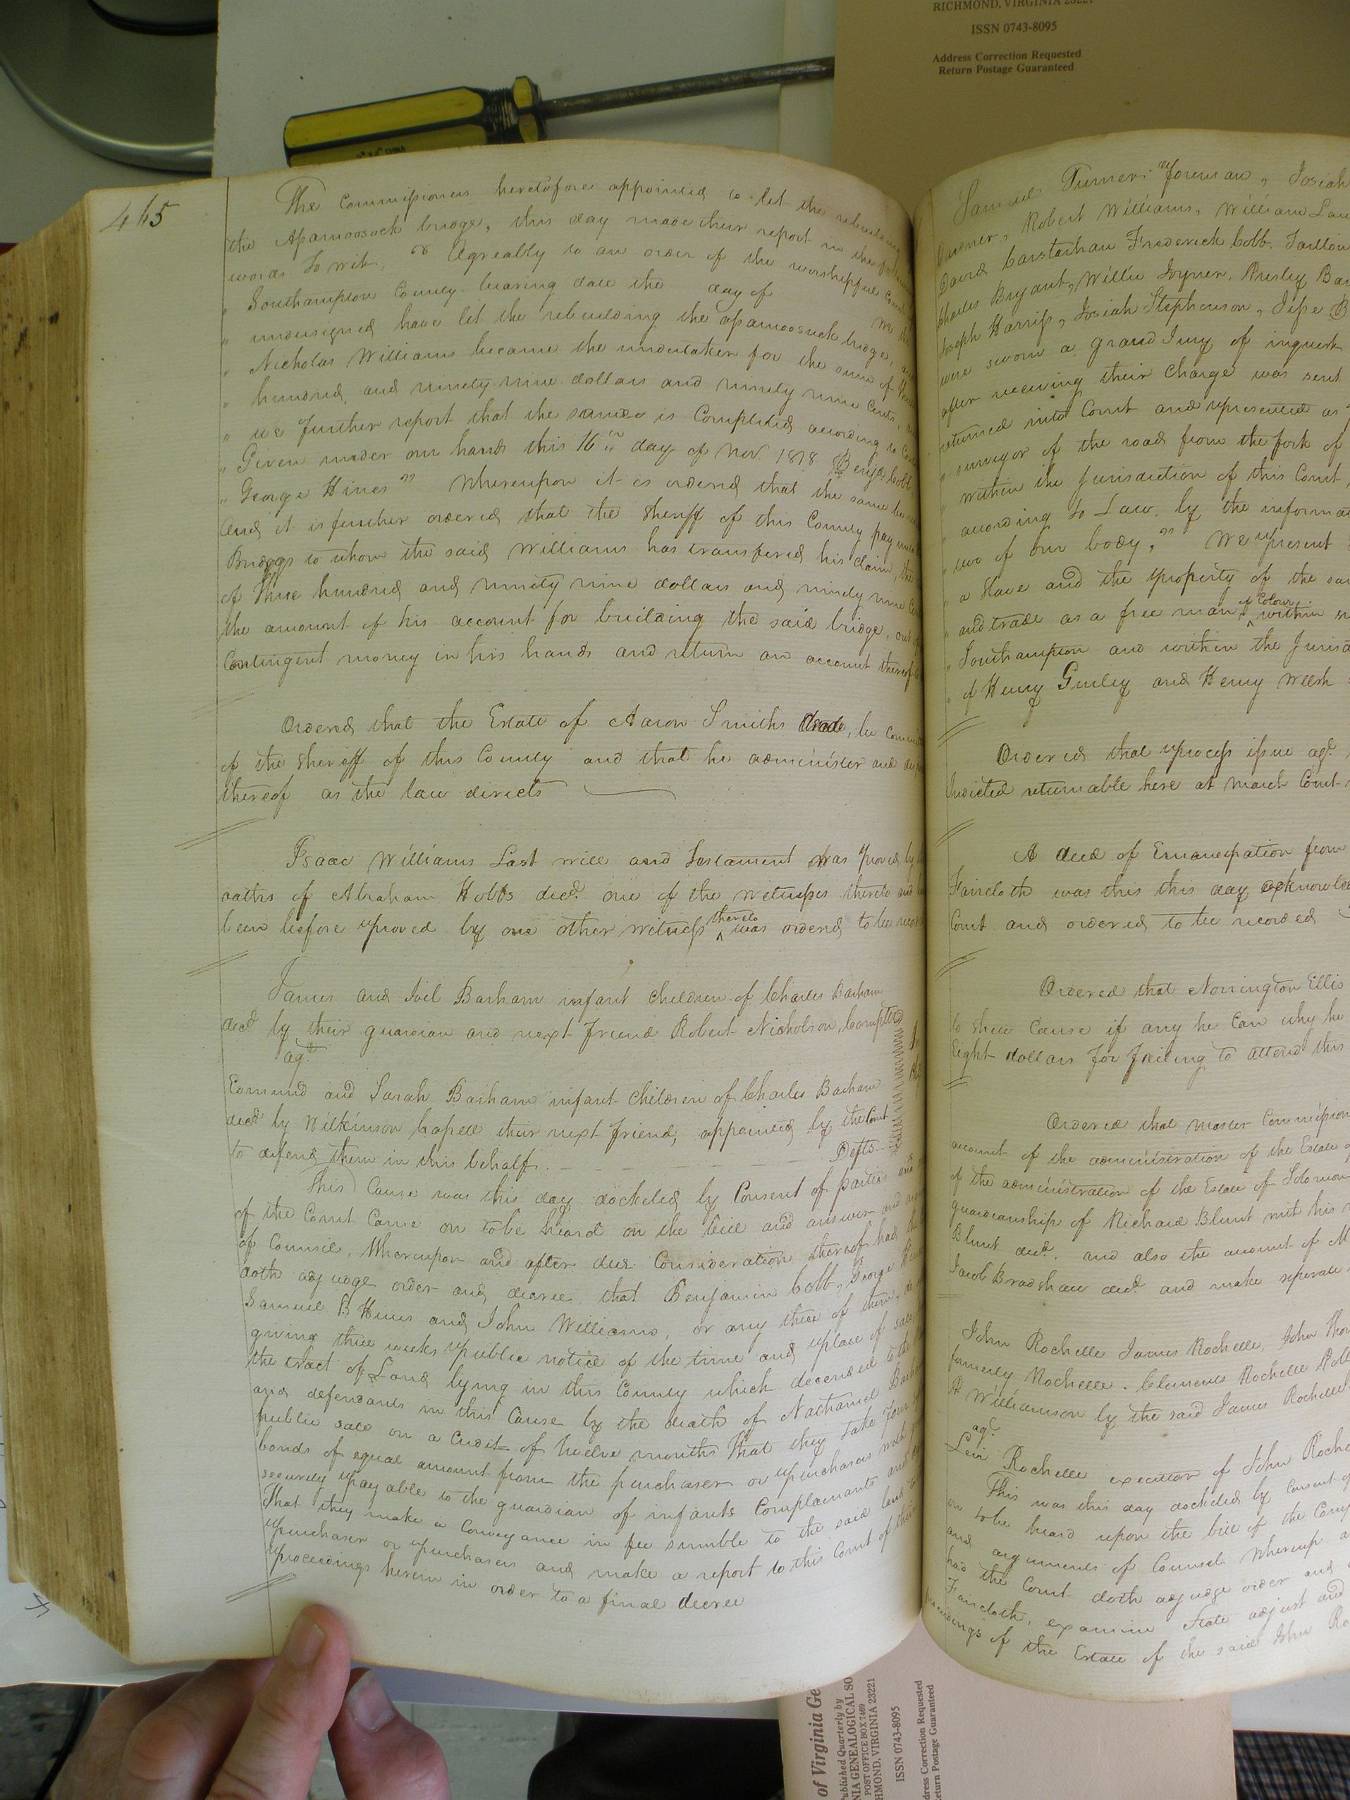 RICHMOND, VIRGINIA 23221
ISSN 0743-8095
Address Correction Requested
Return Postage Guaranteed
465
The Commissioners heretofore appointed to let the rebuilding
the Apamoosuck bridge, this day made their report in the
words to wit, " Agreably to an order of the worshipful
" Southampton County bearing date the day of We the
" undersigned have let the rebuilding the apamoosuck bridge,
" Nicholas Williams became the undertaker for the sum of
" hundred, and ninety nine dollars and ninety nine Cents,
" we further report that the same is Completed according to
" Given under our hands this 16th day of Nov 1818 Benja Cobb
" George Hines" Whereupon it is ordered that the same be
And it is further ordered that the Sheriff of this County pay
Briggs to whom the said Williams has transfered his claim, the
of three hundred and ninety nine dollars and ninety nine
the amount of his account for building the said bridge, out
Contingent money in his hands and return an account thereof
Ordered that the Estate of Aaron Smith Decd, be
of the Sheriff of this County and that he administer and
thereof as the law directs
Isaac Williams Last will and Testament was proved by
oaths of Abraham Hobbs decd. one of the witnesses thereto and
been before proved by one other witness thereto was ordered to be
James and Joel Barham infant children of Charles Barham
decd by their guardian and next friend Robert Nicholson, Complts
agt
Edmund and Sarah Barham infant Children of Charles Barham
decd by Wilkinson Capell their next friend, appointed by the Court
to defend them in this behalf. Defts
This Cause was this day docketed by Consent of parties and
of the Court Came on to be heard on the bill and answer and
of Council, Whereupon and after due Consideration thereof had the
doth adjudge order and decree that Benjamin Cobb, George
Samuel B Hines and John Williams, or any three of them, do
giving three weeks public notice of the time and place of sale
the tract of Land lying in this County which decended to the
and defendants in this Cause by the death of Nathaniel
public sale on a Credit of twelve months That they take
bonds of equal amount from the purchaser or purchasers with
security payable to the guardian of infants Complainants and
That they make a Conveyance in fee simble to the said land to
purchaser or purchasers and make a report to this Court of their
proceedings herein in order to a final decree
Samuel Turner foreman, Josiah
Robert Williams, William
David Carstarhan Frederick Cobb,
Charles Bryant, Willie Joyner, Presley
Joseph Harriss, Josiah Stephenson, Jesse
were sworn a grand Jury of inquest
after receiving their Charge was sent
returned into Court and presented as
" surveyor of the road from the fork of
" within the Jurisdiction of this Court,
" according to Law, by the
" two of our body," We present
" a Slave and the property of the
" and trade as a free man of Colour within
" Southampton and within the
" of Henry Gurley and Henry Welsh
Ordered that process issue agt.
Indicted returnable here at March Court
A deed of Emancipation from
Faircloth was this this day acknow
Court and ordered to be recorded
Ordered that Norrington Ellis
to shew Cause if any he Can why he
Eight dollars for failing to attend this
Ordered that master Commission
account of the administration of the Estate
of the administration of the Estate of Solomon
guardianship of Richard Blunt with his
Blunt decd. and also the account of
Jacob Bradshaw decd. and make seperate
John Rochelle James Rochelle, John
formerly Rochelle. Clements Rochelle
Williamson by the said James Rochelle
agt.
Levi Rochelle executor of John
This was this day docketed by Consent of
on to be heard upon the bill of the
and arguments of Counsel Whereup
had the Court doth adjudge order and
Faircloth, examine State adjust and
of the Estate of the said John
of Virginia Ge
Published Quarterly by
NIA GENEALOGICAL SO
POST OFFICE BOX 7469
HMOND, VIRGINIA 23221
ISSN 0743-8095
ddress Correction Requested
eturn Postage Guaranteed